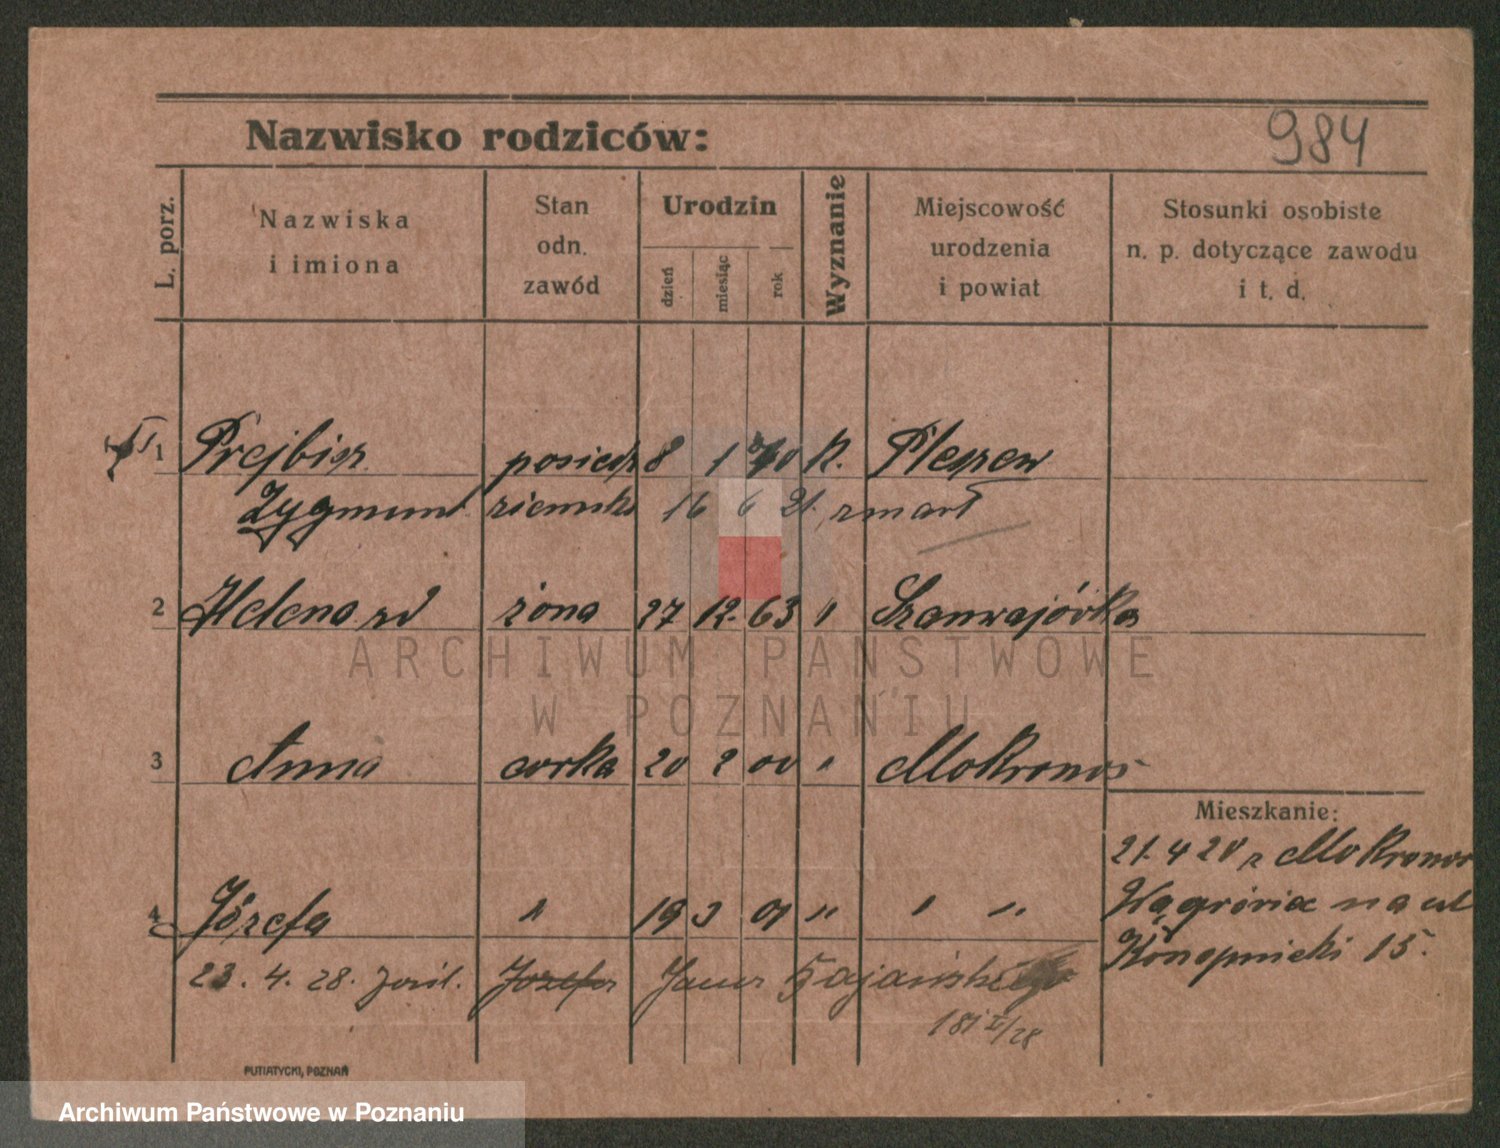 Nazwisko rodziców:
984
L. porz.
Nazwiska
i imiona
Stan
odn.
zawód
Urodzin
dzień
miesiąc
rok
Wyznanie
Miejscowość
urodzenia
i powiat
Stosunki osobiste
n. p. dotyczące zawodu
i t. d.
1 Prejbisz posiedz 8 1 70 K. Pleszew
Zygmunt ziemski 16 6 21 zmarł
2 Helena zd żona 27 12. 63 "
3 Anna corka 20 2 00 " Mokronos
Mieszkanie:
21.4 28 z Mokronos
4 Józefa " 19 3 01 " " "
Wągrówiec na ul
Konopnicki 15.
23. 4. 28. Józefa
181 II/28
PUTIATYCKI, POZNAŃ
ARCHIWUM PAŃSTWOWE
W POZNANIU
Archiwum Państwowe w Poznaniu